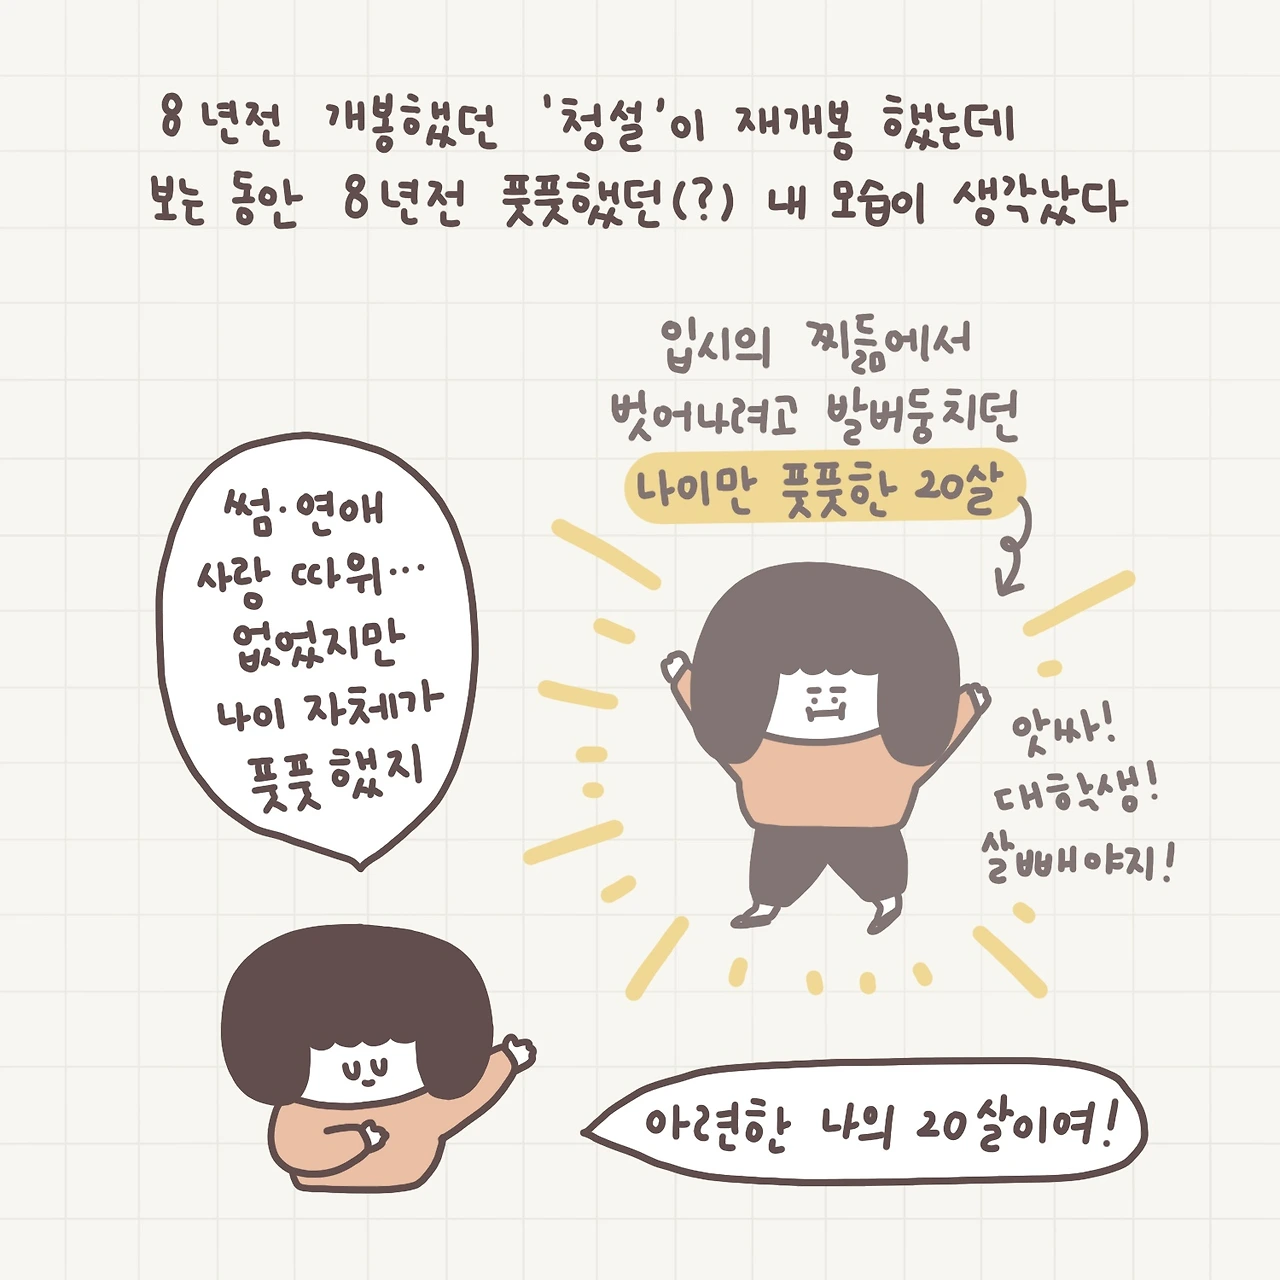 8년전 개봉했던 '청설'이 재개봉 했는데
보는 동안 8년전 풋풋했던(?) 내 모습이 생각났다
입시의 찌듦에서
벗어나려고 발버둥치던
나이만 풋풋한 20살
썸·연애
사랑 따위...
없었지만
나이 자체가
풋풋했지
앗싸!
대학생!
살빼야지!
아련한 나의 20살이여!